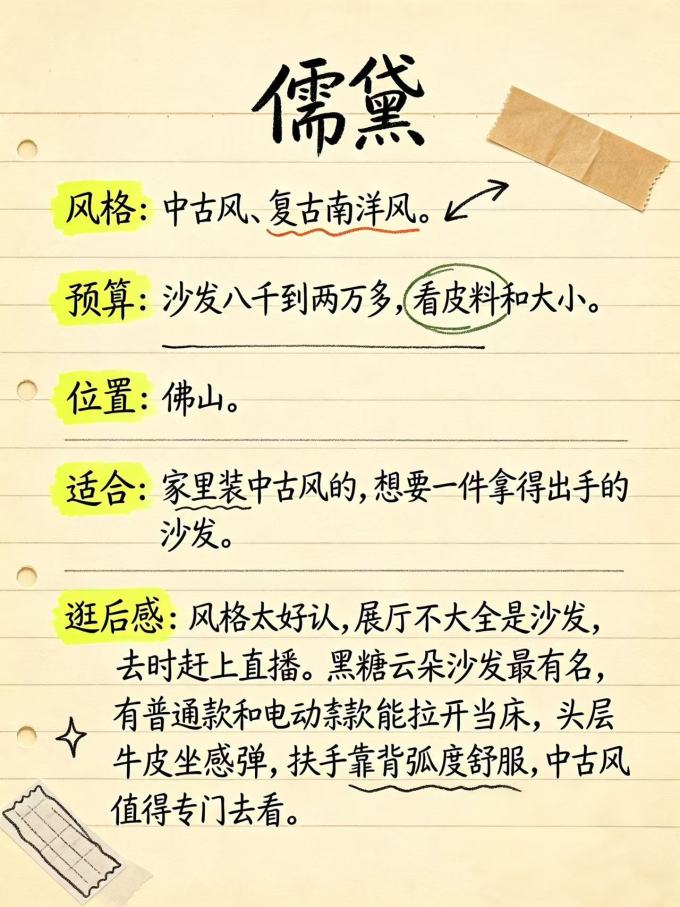 儒黛
风格：中古风、复古南洋风。
预算：沙发八千到两万多，看皮料和大小。
位置：佛山。
适合：家里装中古风的，想要一件拿得出手的
沙发。
逛后感：风格太好认，展厅不大全是沙发，
去时赶上直播。黑糖云朵沙发最有名，
有普通款和电动款能拉开当床，头层
牛皮坐感弹，扶手靠背弧度舒服，中古风
值得专门去看。